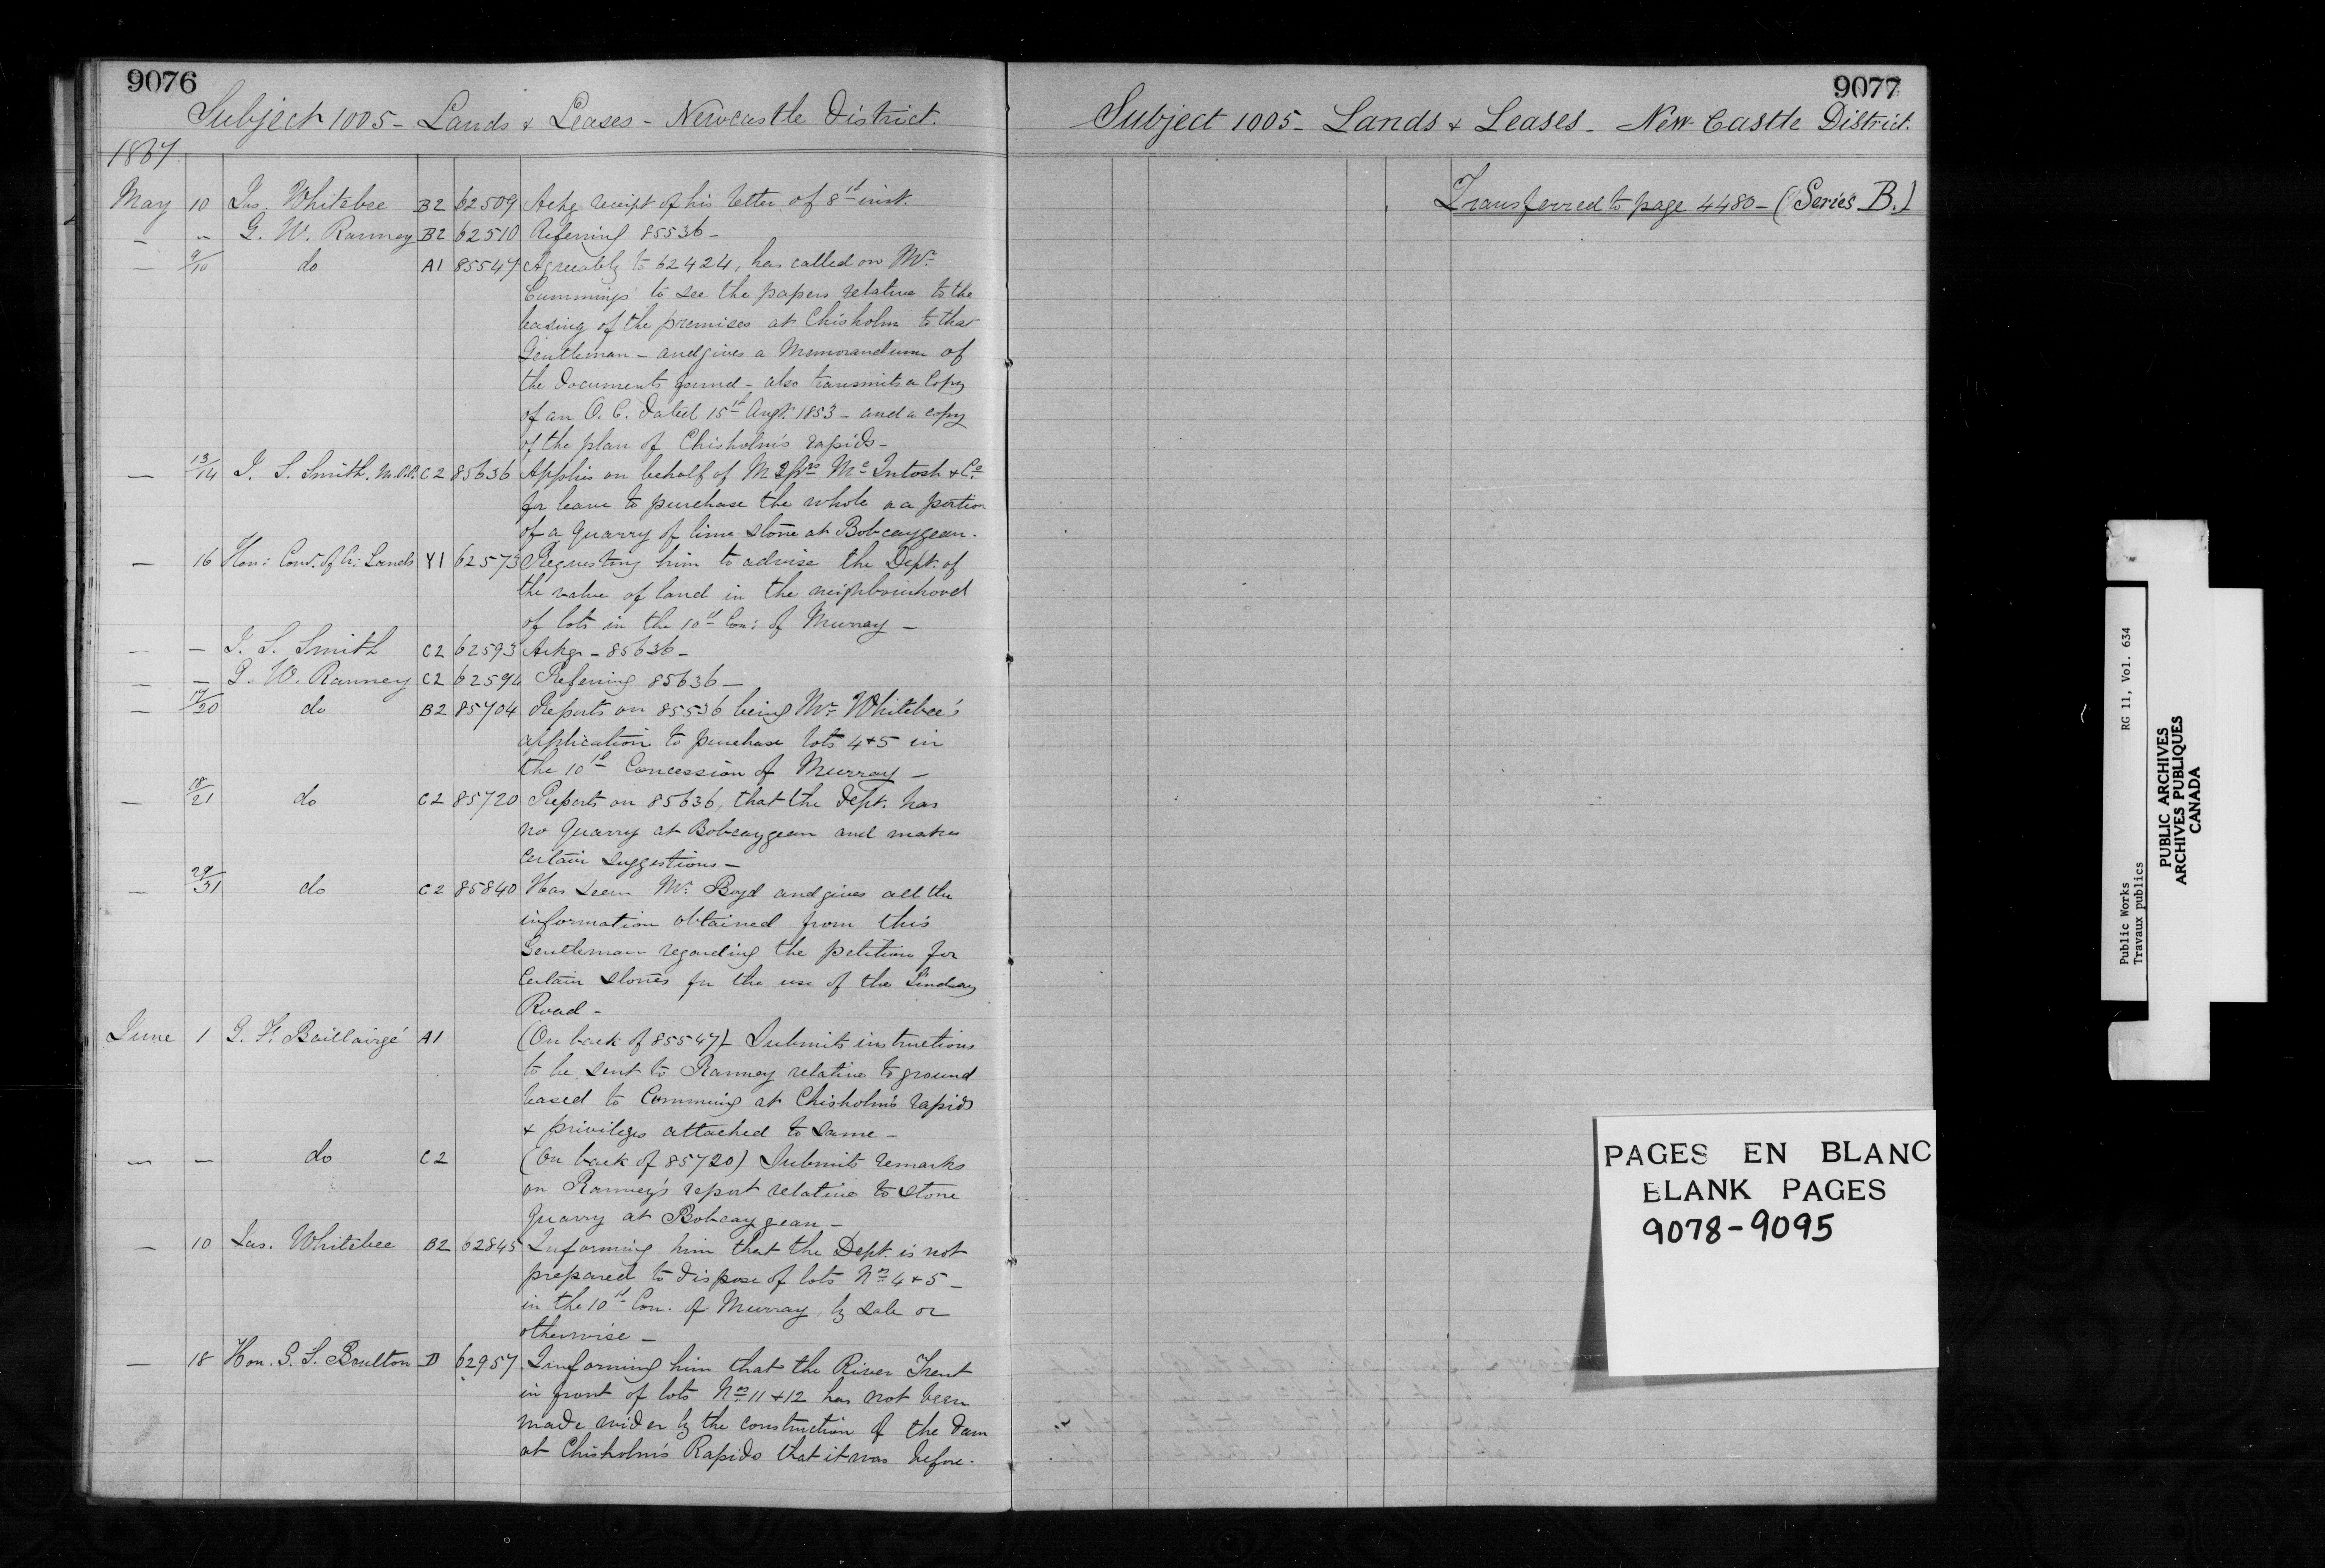 9076
Subject 1005 - Lands & Leases - Newcastle District.
1867
May 10 Jas. Whitebee B2 62509 Ackg receipt of his letter of 8th inst.
— " G. W. Ranney B2 62510 Referring 85536 -
— 9/10 do A1 85547 Agreeably to 62424, has called on Mr
Cummings to see the papers relative to the
leasing of the premises at Chisholm to that
Gentleman - and gives a Memorandum of
the documents found - also transmits a Copy
of an O. C. dated 15th Augt. 1853 - and a copy
of the plan of Chisholm's rapids -
— 13/14 J. S. Smith. M.P.P. C2 85636 Applies on behalf of Mc Intosh & Co
for leave to purchase the whole or a portion
of a Quarry of lime stone at Bobcaygean.
— 16 Hon: Comr. of Cr: Lands Y1 62573 Requesting him to advise the Dept. of
the value of land in the neighbourhood
of lots in the 10th Con: of Murray -
— — J. S. Smith C2 62593 Ackg - 85636 -
— — G. W. Ranney C2 62594 Referring 85636 —
— 17/20 do B2 85704 Reports on 85536 being Mr Whitebee's
application to purchase lots 4 & 5 in
the 10th Concession of Murray -
— 18/21 do C2 85720 Reports on 85636, that the Dept. has
no Quarry at Bobcaygean and makes
Certain Suggestions -
— 29/31 do C2 85840 Has seen Mr. Boyd and gives all the
information obtained from this
Gentleman regarding the petition for
Certain Stones for the use of the Lindsay
Road -
June 1 G. F. Baillairgé A1 (On back of 85547) Submits instructions
to be sent to Ranney relative to ground
leased to Cumming at Chisholm's rapids
& privileges attached to same -
— — do C2 (On back of 85720) Submits remarks
on Ranney's report relative to stone
Quarry at Bobcaygean -
— 10 Jas. Whitebee B2 62845 Informing him that the Dept. is not
prepared to dispose of lots Nos 4 & 5 -
in the 10th Con. of Murray, by sale or
otherwise -
— 18 Hon. G. S. Boulton D 62957 Informing him that the River Trent
in front of lots Nos 11 & 12 has not been
made wider by the construction of the dam
at Chisholm's Rapids that it was before.
9077
Subject 1005 - Lands & Leases - New Castle District.
Transferred to page 4480 - (Series B.)
PAGES EN BLANC
BLANK PAGES
9078-9095
Public Works RG 11, Vol. 634
Travaux publics
PUBLIC ARCHIVES
ARCHIVES PUBLIQUES
CANADA